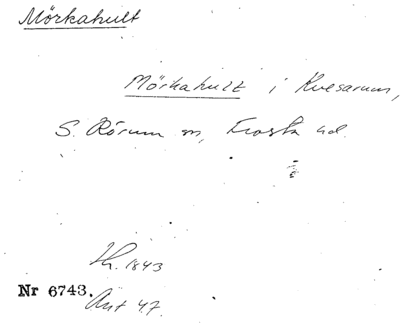 Mörkahult
Mörkahult i Kvesarum,
S. Rörum sn, Frosta hd.
1843
Nr 6743.
Ant 47.